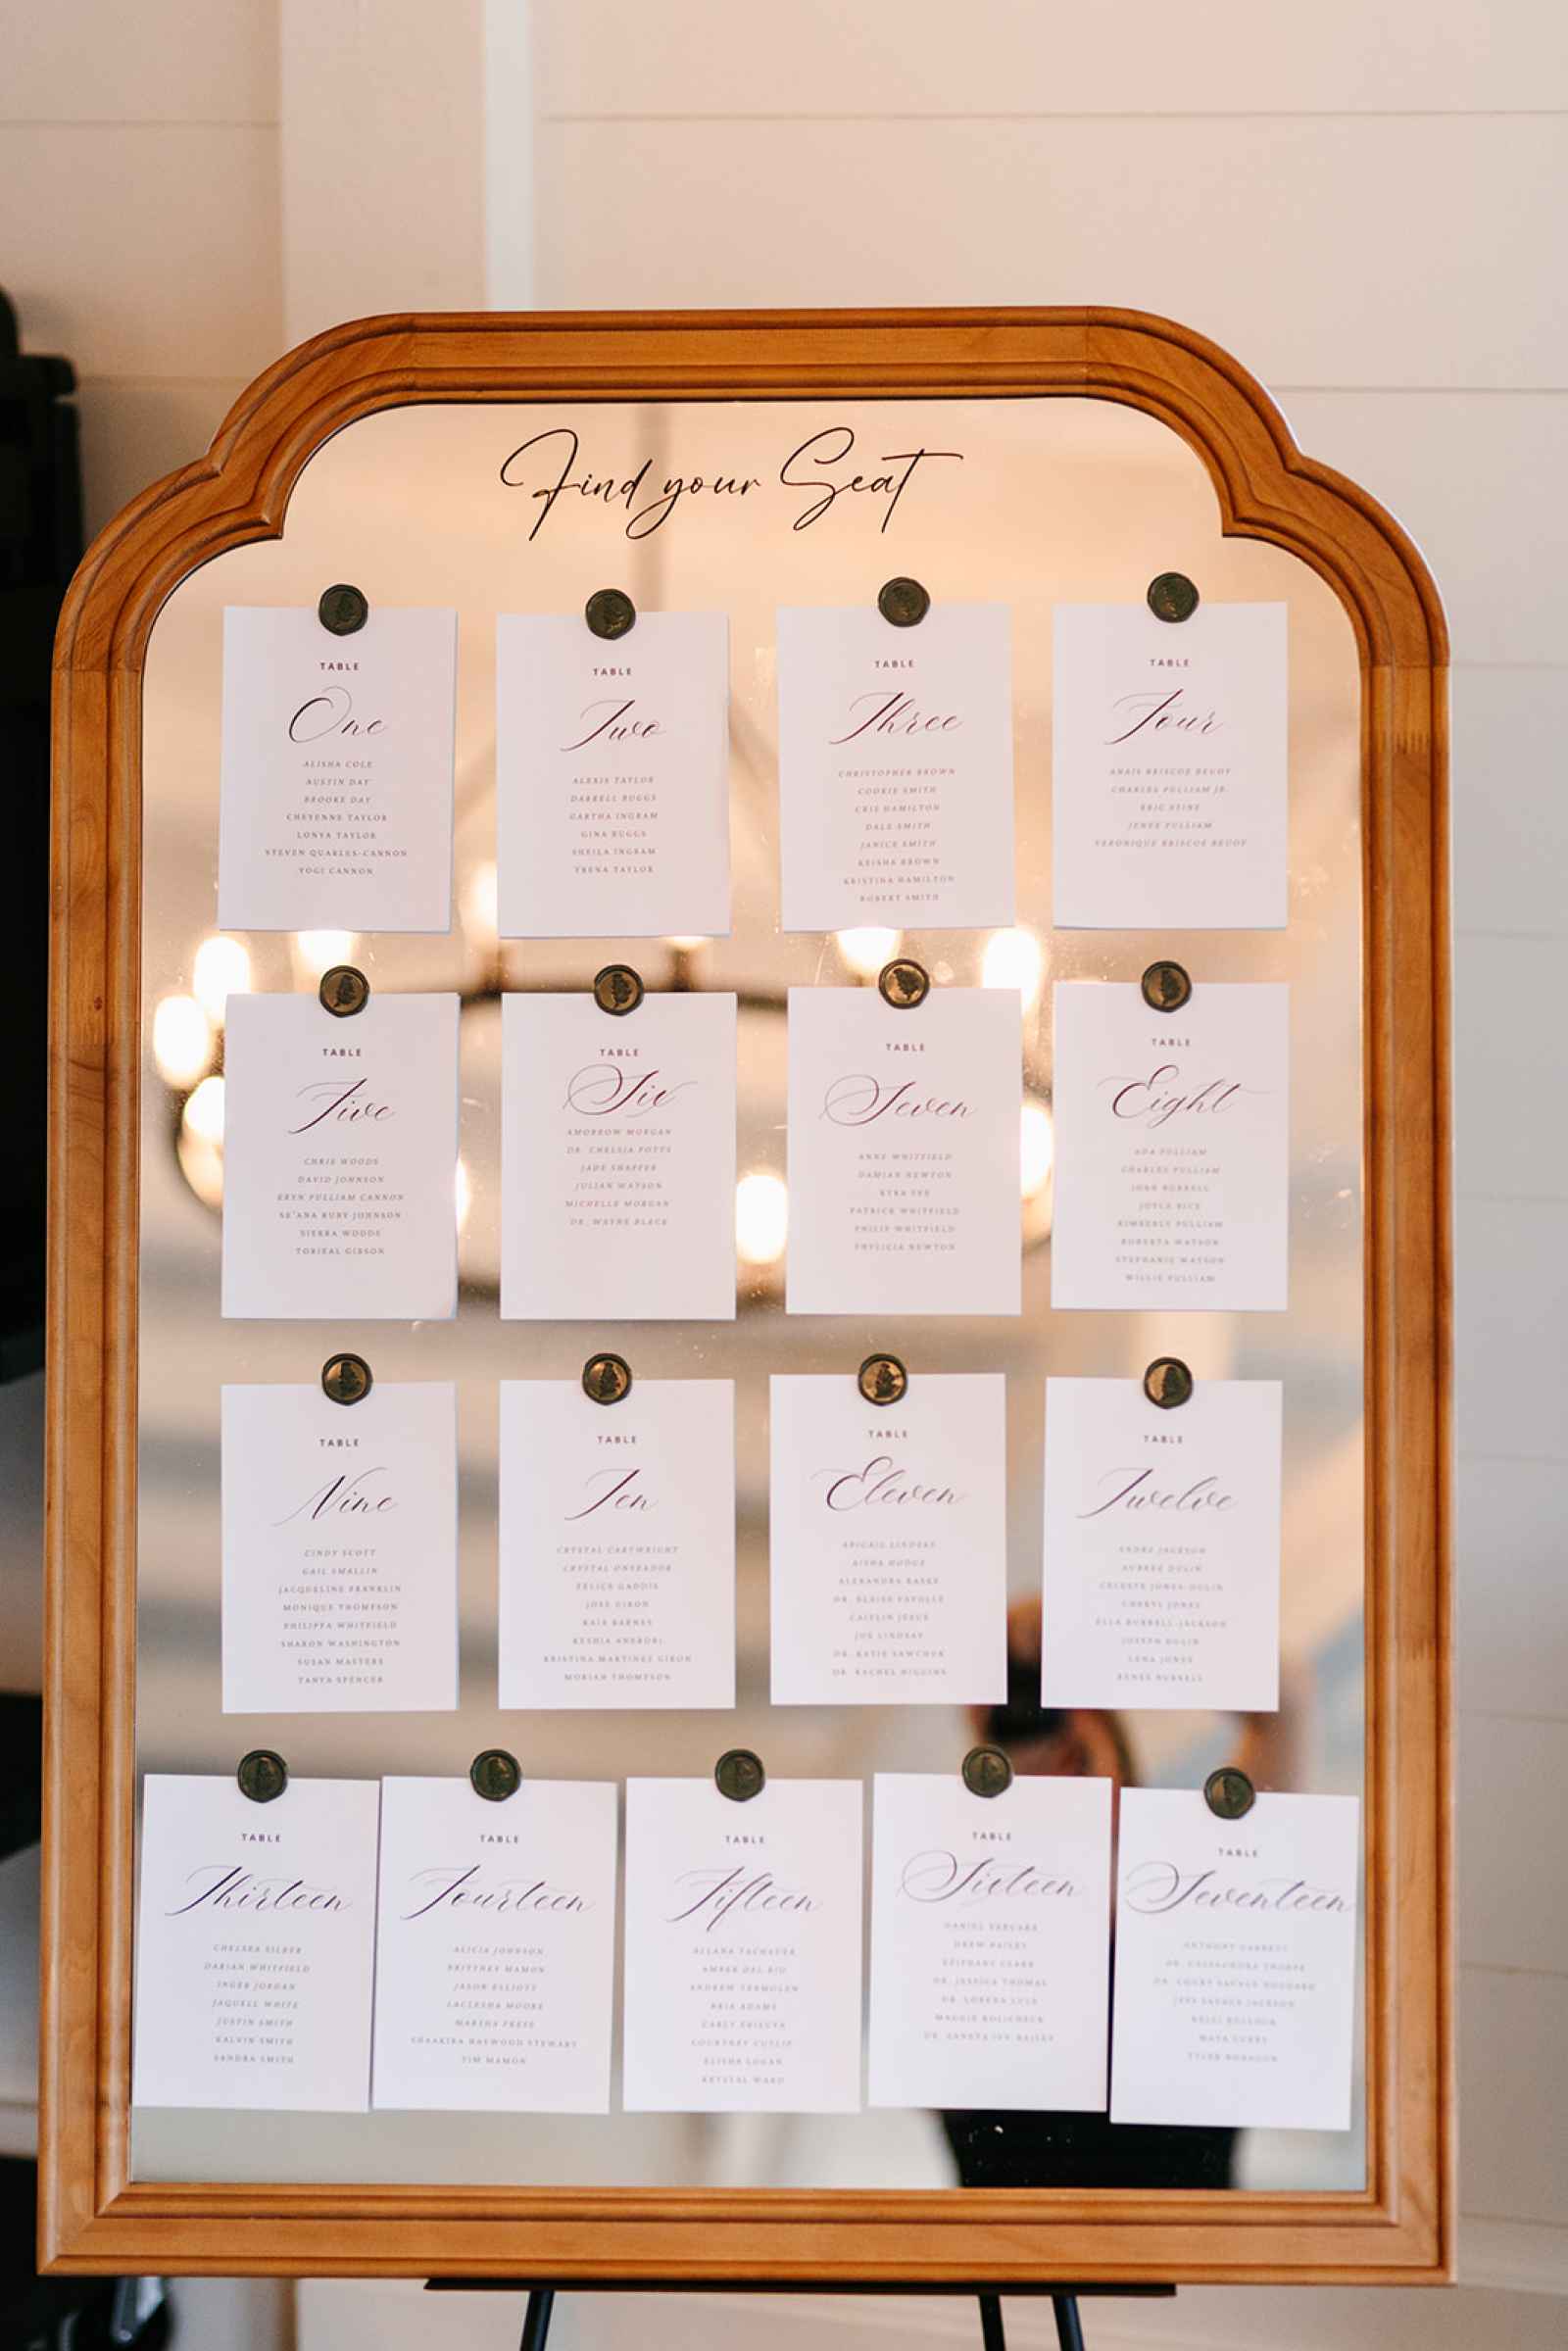 Find your Seat
TABLE
One
ALISHA COLE
AUSTIN DAY
BROOKE DAY
CHEYENNE TAYLOR
LONYA TAYLOR
STEVEN QUARLES-CANNON
YOGI CANNON
TABLE
Two
ALEXIS TAYLOR
DARRELL BUGGS
GARTHA INGRAM
GINA BUGGS
SHEILA INGRAM
TRENA TAYLOR
TABLE
Three
CHRISTOPHER BROWN
COOKIE SMITH
CRIS HAMILTON
DALE SMITH
JANICE SMITH
KEISHA BROWN
KRISTINA HAMILTON
ROBERT SMITH
TABLE
Four
ANAIS BRISCOE BEUOY
CHARLES PULLIAM JR.
ERIC HEINE
JENEE PULLIAM
VERONIQUE BRISCOE BEUOY
TABLE
Five
CHRIS WOODS
DAVID JOHNSON
ERYN PULLIAM CANNON
SE'ANA RUBY-JOHNSON
SIERRA WOODS
TORIEAL GIBSON
TABLE
Six
AMORROW MORGAN
DR. CHELSIA POTTS
JADE SHAFFER
JULIAN WATSON
MICHELLE MORGAN
DR. WAYNE BLACK
TABLE
Seven
ANNE WHITFIELD
DAMIAN NEWTON
PATRICK WHITFIELD
PHILIP WHITFIELD
PHYLICIA NEWTON
TABLE
Eight
ADA PULLIAM
CHARLES PULLIAM
JOHN BURRELL
JOYLA RICE
KIMBERLY PULLIAM
ROBERTA WATSON
STEPHANIE WATSON
WILLIE PULLIAM
TABLE
Nine
CINDY SCOTT
GAIL SMALLIN
JACQUELINE FRANKLIN
MONIQUE THOMPSON
PHILIPPA WHITFIELD
SHARON WASHINGTON
SUSAN MASTERS
TANYA SPENCER
TABLE
Ten
CRYSTAL CARTWRIGHT
CRYSTAL ONYEADOR
FELICE GADDIS
JOSE GIRON
KAIS BARNES
KESHIA ANDROBI
KRISTINA MARTINEZ GIRON
MORIAH THOMPSON
TABLE
Eleven
ABIGAIL LINDSAY
AISHA HODGE
ALEXANDRA
DR. BLAISE
CAITLIN JESUS
JOE LINDSAY
DR. KATIE SAWCHUK
DR. RACHEL HIGGINS
TABLE
Twelve
ANDRE JACKSON
AUBREE DULIN
CELESTE JONES-DULIN
CHERYL JONES
ELLA BURRELL-JACKSON
JOSEPH DULIN
LENA JONES
RENEE BURRELL
TABLE
Thirteen
CHELSEA SILBER
DARIAN WHITFIELD
INGER JORDAN
JAQUELL WHITE
JUSTIN SMITH
KALVIN SMITH
SANDRA SMITH
TABLE
Fourteen
ALICIA JOHNSON
BRITTNEY MAMON
JASON ELLIOTT
LACIESHA MOORE
MARSHA PRESS
SHAAKIRA HAYWOOD STEWART
TIM MAMON
TABLE
Fifteen
ALLANA
AMBER DEL RIO
ANDREW VERMULEN
BRIA ADAMS
CARLY
COURTNEY CUTLIP
ELISHA LOGAN
KRYSTAL WARD
TABLE
Sixteen
DANIEL
DREW BAILEY
EPIPHANY CLARK
DR. JESSICA THOMAS
DR. LORENA
MAGGIE
DR. BAILEY
TABLE
Seventeen
ANTHONY
DR. CASSAUNDRA THORPE
DR. COURT SAVAGE
JACKSON
KELLI
MAYA CURRY
TYLER